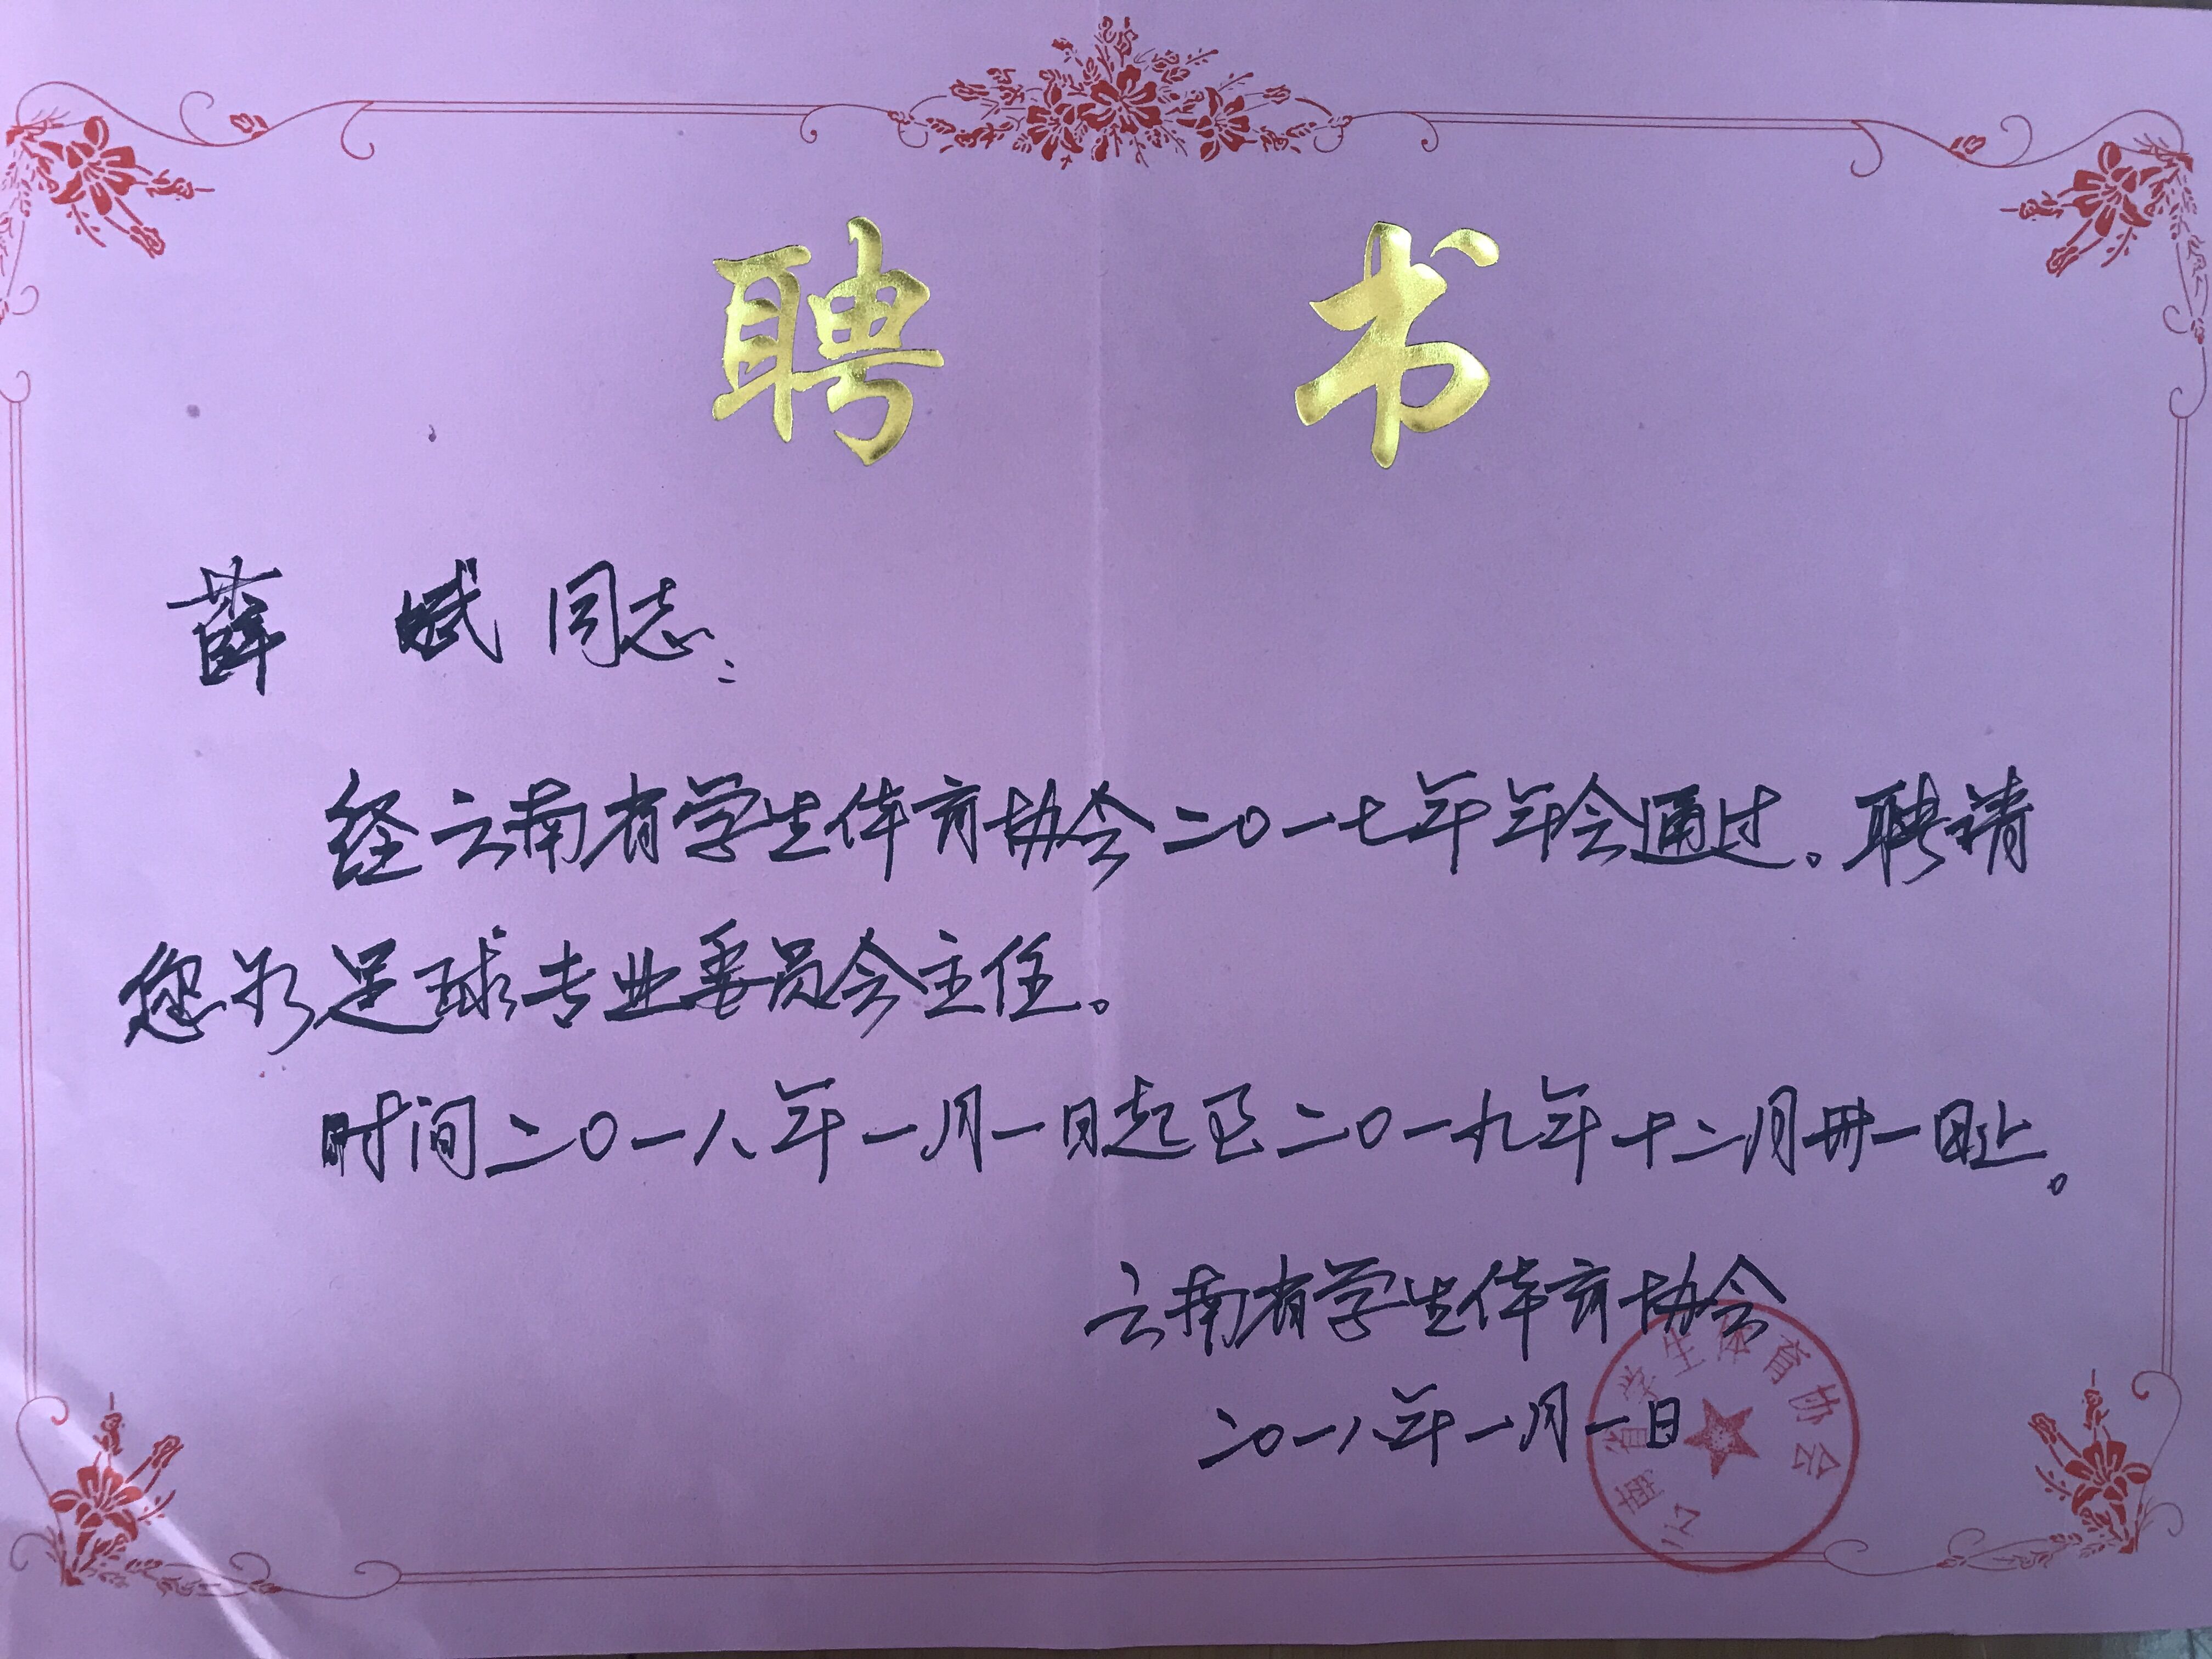 聘书
薛斌同志：
经云南省学生体育协会二〇一七年年会通过。聘请
您为足球专业委员会主任。
时间二〇一八年一月一日起至二〇一九年十二月卅一日止。
云南省学生体育协会
二〇一八年一月一日
云南省学生体育协会